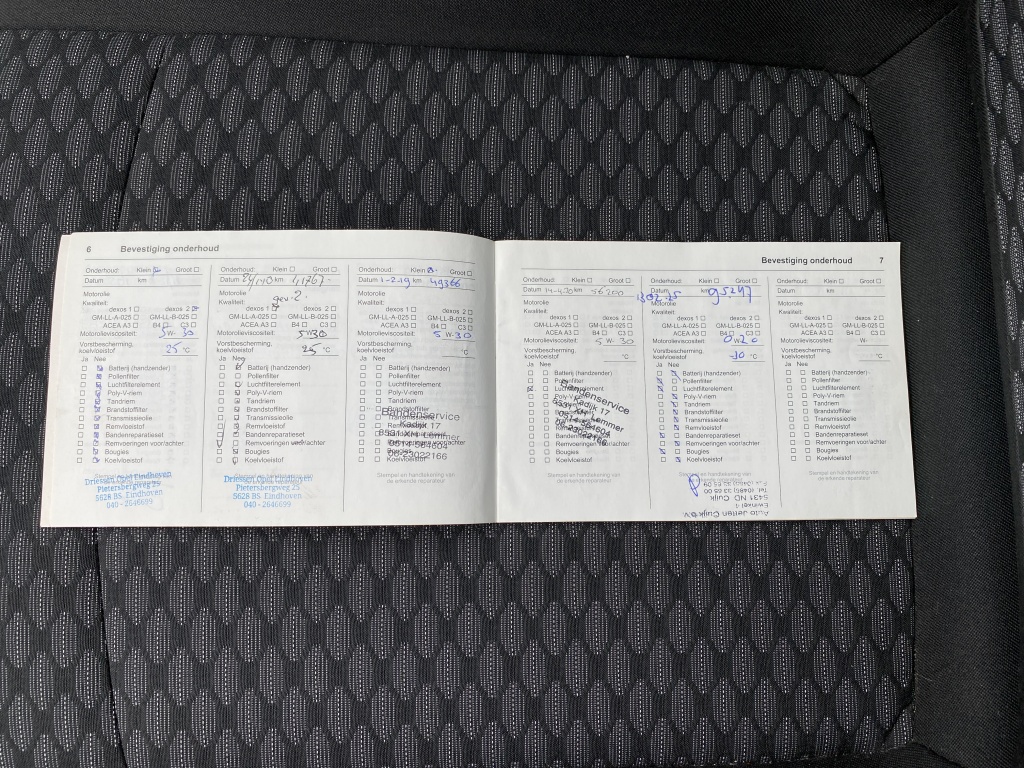 6 Bevestiging onderhoud
Onderhoud: Klein Groot
Datum km
Motorolie
Kwaliteit:
dexos 1 dexos 2
GM-LL-A-025 GM-LL-B-025
ACEA A3 B4 C3
Motorolieviscositeit: 5 W- 30
Vorstbescherming,
koelvloeistof 25 °C
Ja Nee
Batterij (handzender)
Pollenfilter
Luchtfilterelement
Poly-V-riem
Tandriem
Brandstoffilter
Transmissieolie
Remvloeistof
Bandenreparatieset
Remvoeringen voor/achter
Bougies
Koelvloeistof
Driessen Opel Eindhoven
Pietersbergweg 25
5628 BS Eindhoven
040 - 2646699
Onderhoud: Klein Groot
Datum km 41767
Motorolie
Kwaliteit: gev 2
dexos 1 dexos 2
GM-LL-A-025 GM-LL-B-025
ACEA A3 B4 C3
Motorolieviscositeit: 5W30
Vorstbescherming,
koelvloeistof 25 °C
Ja Nee
Batterij (handzender)
Pollenfilter
Luchtfilterelement
Poly-V-riem
Tandriem
Brandstoffilter
Transmissieolie
Remvloeistof
Bandenreparatieset
Remvoeringen voor/achter
Bougies
Koelvloeistof
Driessen Opel Eindhoven
Pietersbergweg 25
5628 BS Eindhoven
040 - 2646699
Onderhoud: Klein Groot
Datum 1-2-19 km 49366
Motorolie
Kwaliteit:
dexos 1 dexos 2
GM-LL-A-025 GM-LL-B-025
ACEA A3 B4 C3
Motorolieviscositeit: 5 W-30
Vorstbescherming,
koelvloeistof °C
Ja Nee
Batterij (handzender)
Pollenfilter
Luchtfilterelement
Poly-V-riem
Tandriem
Brandstoffilter
Bandenservice
Kadijk 17
Lemmer
Bougies
Koelvloeistof
Stempel en handtekening van
de erkende reparateur
Bevestiging onderhoud 7
Onderhoud: Klein Groot
Datum km 56200
Motorolie
Kwaliteit:
dexos 1 dexos 2
GM-LL-A-025 GM-LL-B-025
ACEA A3 B4 C3
Motorolieviscositeit: 5 W- 30
Vorstbescherming,
koelvloeistof °C
Ja Nee
Batterij (handzender)
Bandenservice
Kadijk 17
Lemmer
Bougies
Koelvloeistof
Stempel en handtekening van
de erkende reparateur
Onderhoud: Klein Groot
Datum km 95247
Motorolie
Kwaliteit:
dexos 1 dexos 2
GM-LL-A-025 GM-LL-B-025
ACEA A3 B4 C3
Motorolieviscositeit: 0 W20
Vorstbescherming,
koelvloeistof -30 °C
Ja Nee
Batterij (handzender)
Pollenfilter
Luchtfilterelement
Poly-V-riem
Tandriem
Brandstoffilter
Transmissieolie
Remvloeistof
Bandenreparatieset
Remvoeringen voor/achter
Bougies
Koelvloeistof
Auto Jetten Cuijk B.V.
5431 ND Cuijk
Onderhoud: Klein Groot
Datum km
Motorolie
Kwaliteit:
dexos 1 dexos 2
GM-LL-A-025 GM-LL-B-025
ACEA A3 B4 C3
Motorolieviscositeit: W-
Vorstbescherming,
koelvloeistof °C
Ja Nee
Batterij (handzender)
Pollenfilter
Luchtfilterelement
Poly-V-riem
Tandriem
Brandstoffilter
Transmissieolie
Remvloeistof
Bandenreparatieset
Remvoeringen voor/achter
Bougies
Koelvloeistof
Stempel en handtekening van
de erkende reparateur